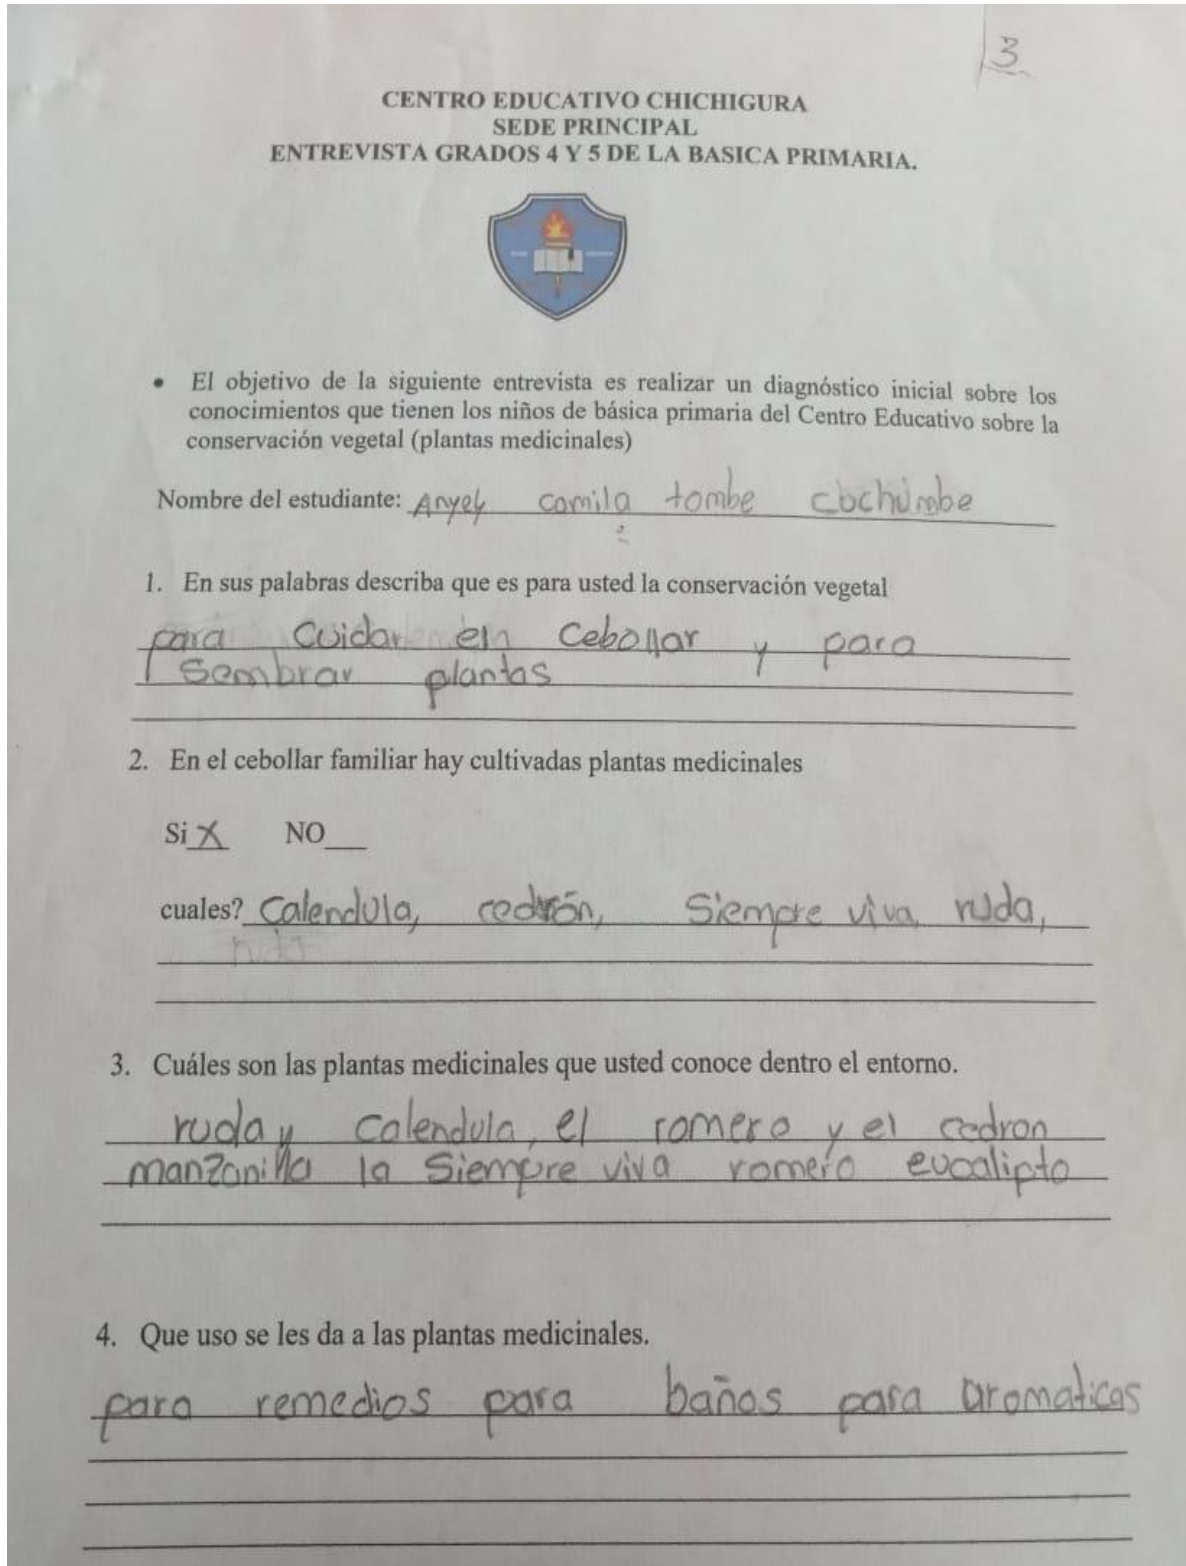 3
CENTRO EDUCATIVO CHICHIGURA
SEDE PRINCIPAL
ENTREVISTA GRADOS 4 Y 5 DE LA BASICA PRIMARIA.
• El objetivo de la siguiente entrevista es realizar un diagnóstico inicial sobre los
conocimientos que tienen los niños de básica primaria del Centro Educativo sobre la
conservación vegetal (plantas medicinales)
Nombre del estudiante: Anyely camila tombe cuchumbe
1. En sus palabras describa que es para usted la conservación vegetal
para cuidar en cebollar y para
sembrar plantas
2. En el cebollar familiar hay cultivadas plantas medicinales
Si X NO
cuales? Calendula, cedrón, Siempre viva, ruda,
ruda
3. Cuáles son las plantas medicinales que usted conoce dentro el entorno.
ruda y calendula, el romero y el cedron
manzanilla la Siempre viva romero eucalipto
4. Que uso se les da a las plantas medicinales.
para remedios para baños para aromaticas